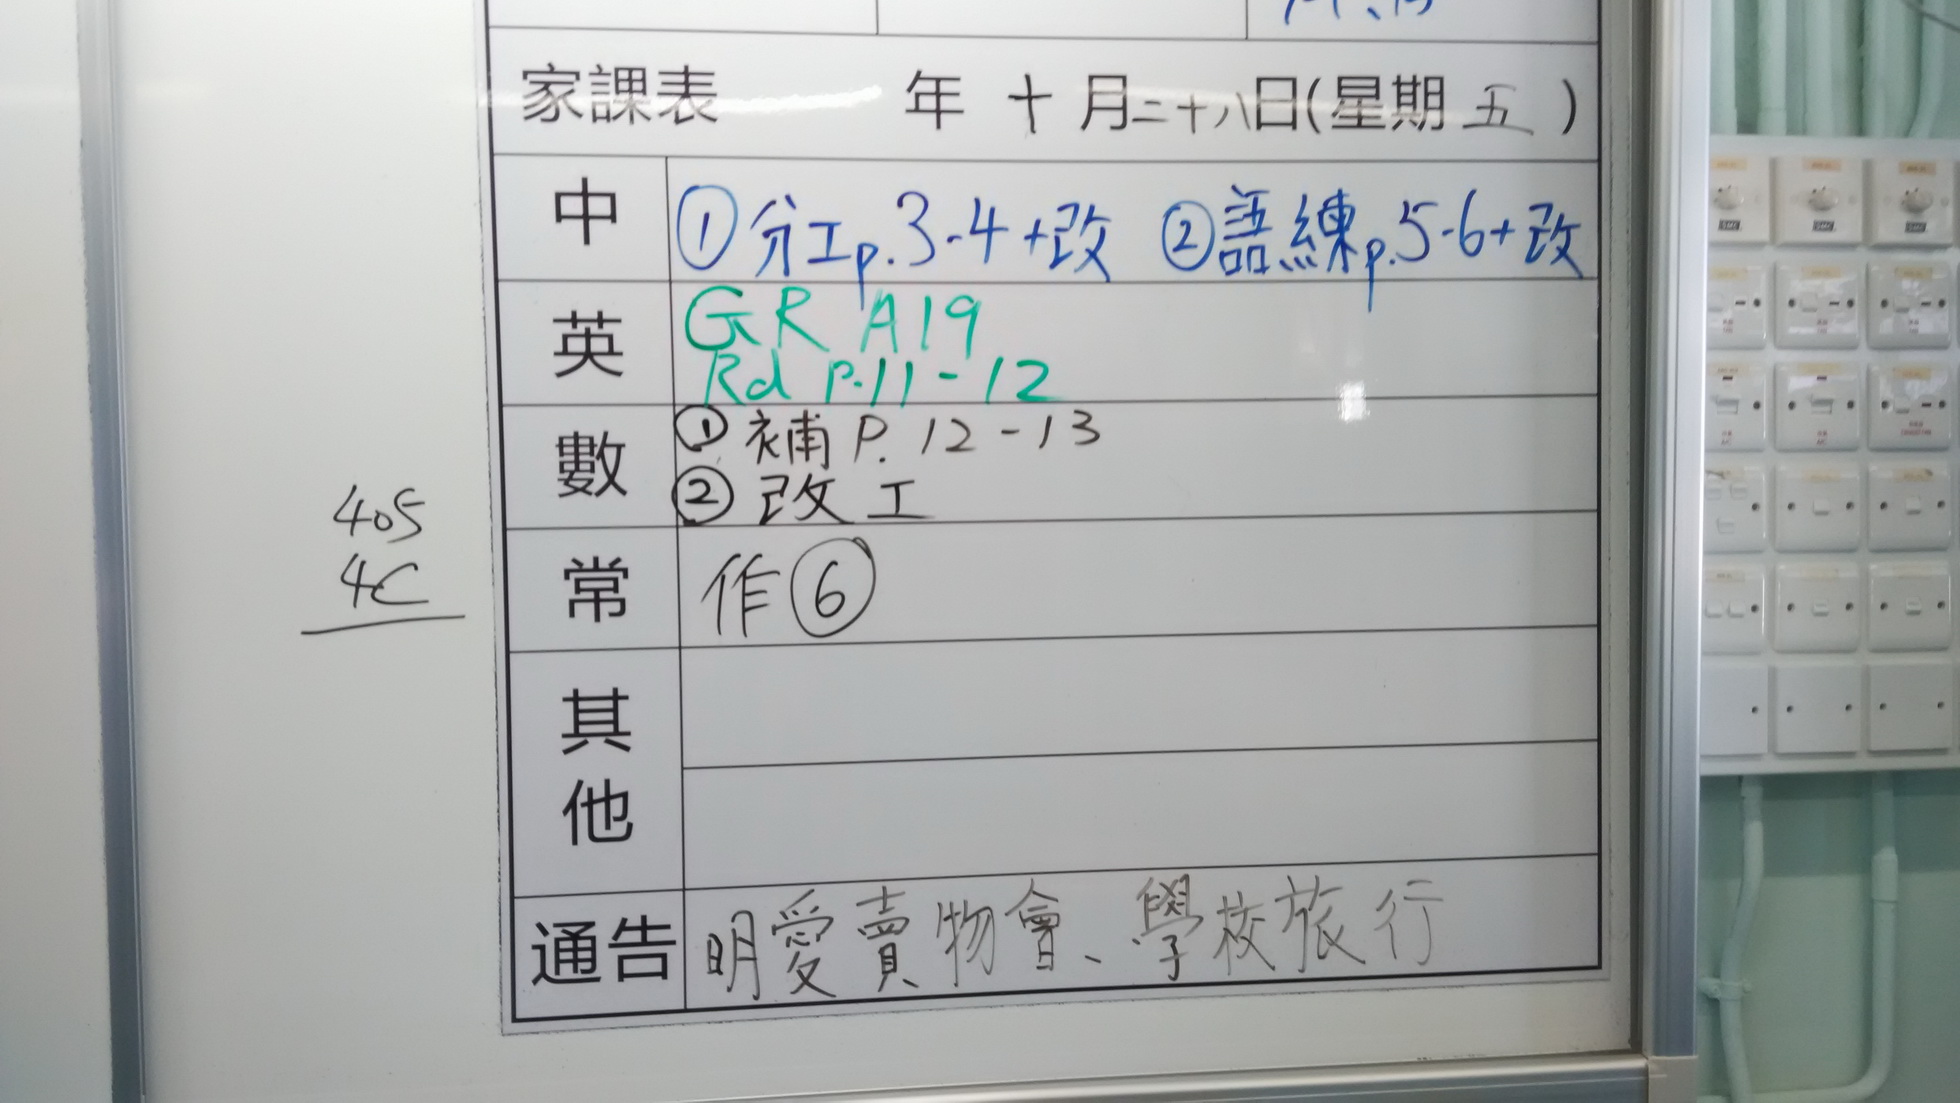 家課表 年 十 月二十八日(星期 五 )
中 ①分工p.3-4+改 ②語練p.5-6+改
英 GR A19
Rd P.11-12
數 ① 補 P. 12-13
② 改工
405
4C
常 作⑥
其他
通告 明愛賣物會、學校旅行